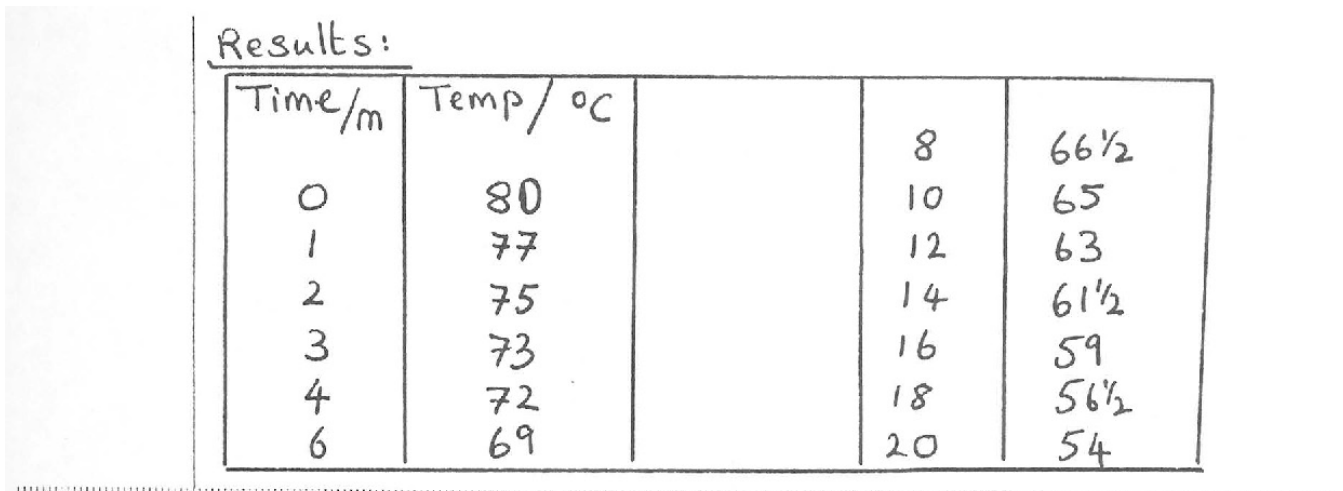 Results:
Time/m Temp/ °C
8 66½
0 80 10 65
1 77 12 63
2 75 14 61½
3 73 16 59
4 72 18 56½
6 69 20 54